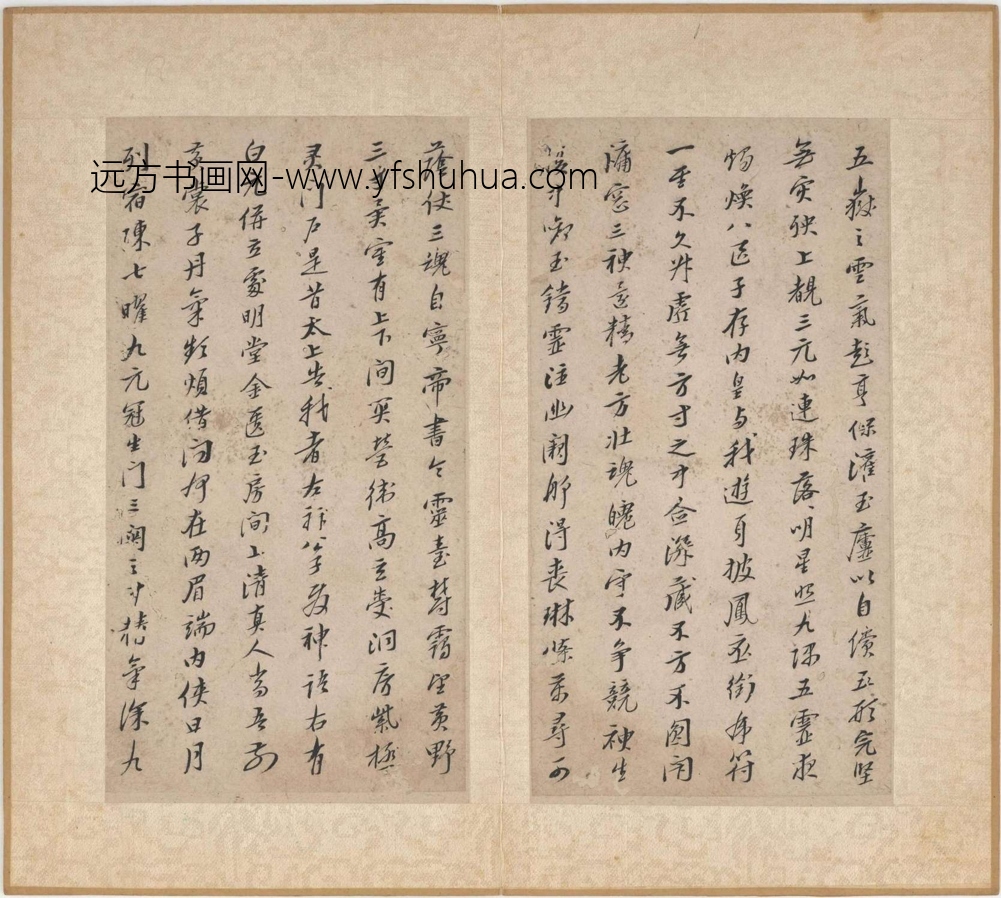 五嶽之雲氣彭亨保灌玉廬以自償五形完堅
無灾殃上覩三元如連珠落落明星照九隅五靈夜
燭煥八區子存内皇与我遊身披鳳衣銜虎符
一至不久升虛無方寸之中念深藏不方不圓閉
牖窓三神還精老方壯魂魄内守不争競神生
腹中銜玉鐺靈注幽闕那得喪琳條萬尋可
蔭仗三魂自寧帝書命靈臺鬱藹望黄野
三寸異室有上下間関營衛高玄受洞房紫極
灵門户是昔太上告我者左神公子發神語右有
白元併立處明堂金匱玉房間上清真人當吾前
黄裳子丹氣頻煩借問何在兩眉端内俠日月
列宿陳七曜九元冠生門三關之中精氣深九
远方书画网-www.yfshuhua.com